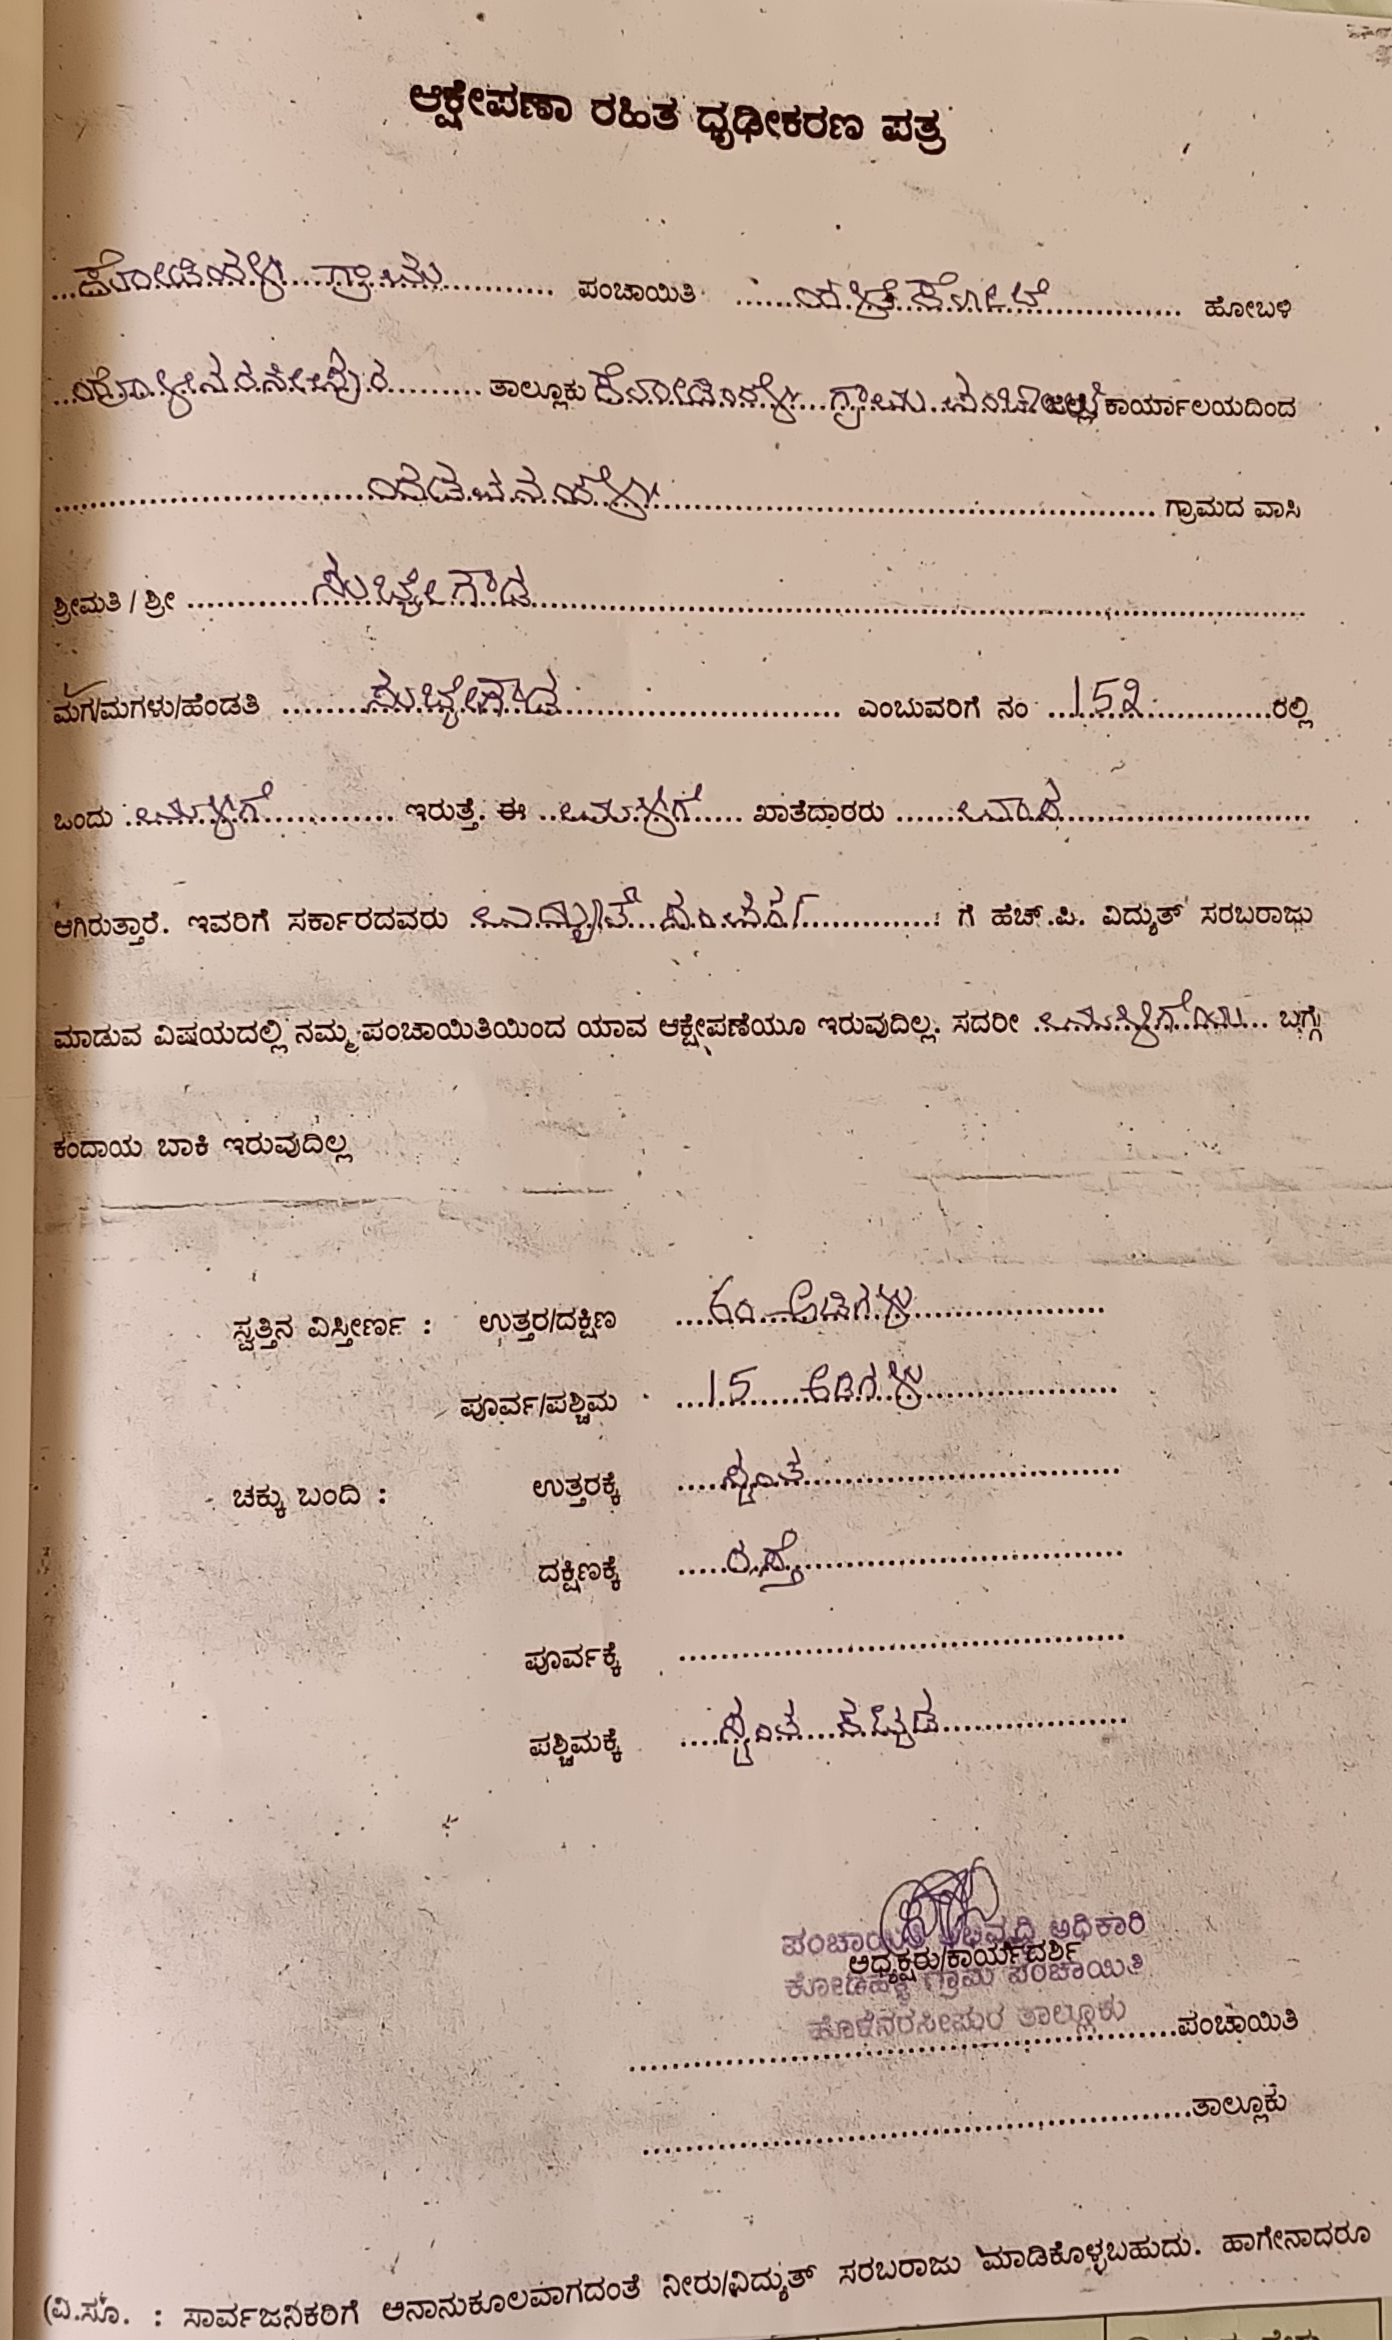 ಆಕ್ಷೇಪಣಾ ರಹಿತ ಧೃಢೀಕರಣ ಪತ್ರ
ಕೋಡಿಹಳ್ಳಿ ಗ್ರಾಮ ಪಂಚಾಯಿತಿ ಹೋಬಳಿ
ಹೊಳೇನರಸೀಪುರ ತಾಲ್ಲೂಕು ಕೋಡಿಹಳ್ಳಿ ಗ್ರಾಮ ಕಾರ್ಯಾಲಯದಿಂದ
ಗ್ರಾಮದ ವಾಸಿ
ಶ್ರೀಮತಿ / ಶ್ರೀ ಸುಬ್ಬೇಗೌಡ
ಮಗ/ಮಗಳು/ಹೆಂಡತಿ ಸುಬ್ಬೇಗೌಡ ಎಂಬುವರಿಗೆ ನಂ 152 ರಲ್ಲಿ
ಒಂದು ಮಳಿಗೆ ಇರುತ್ತೆ. ಈ ಮಳಿಗೆ ಖಾತೆದಾರರು
ಆಗಿರುತ್ತಾರೆ. ಇವರಿಗೆ ಸರ್ಕಾರದವರು ವಿದ್ಯುತ್ ಸಂಪರ್ಕ ಗೆ ಹೆಚ್.ಪಿ. ವಿದ್ಯುತ್ ಸರಬರಾಜು
ಮಾಡುವ ವಿಷಯದಲ್ಲಿ ನಮ್ಮ ಪಂಚಾಯಿತಿಯಿಂದ ಯಾವ ಆಕ್ಷೇಪಣೆಯೂ ಇರುವುದಿಲ್ಲ. ಸದರೀ ಬಗ್ಗೆ
ಕಂದಾಯ ಬಾಕಿ ಇರುವುದಿಲ್ಲ
ಸ್ವತ್ತಿನ ವಿಸ್ತೀರ್ಣ : ಉತ್ತರ/ದಕ್ಷಿಣ ಅಡಿಗಳು
ಪೂರ್ವ/ಪಶ್ಚಿಮ 15 ಅಡಿಗಳು
ಚಕ್ಕು ಬಂದಿ : ಉತ್ತರಕ್ಕೆ ಸ್ವಂತ
ದಕ್ಷಿಣಕ್ಕೆ ರಸ್ತೆ
ಪೂರ್ವಕ್ಕೆ
ಪಶ್ಚಿಮಕ್ಕೆ ಸ್ವಂತ ಕಟ್ಟಡ
ಪಂಚಾಯಿತಿ ಅಭಿವೃದ್ಧಿ ಅಧಿಕಾರಿ
ಅಧ್ಯಕ್ಷರು/ಕಾರ್ಯದರ್ಶಿ
ಕೋಡಿಹಳ್ಳಿ ಗ್ರಾಮ ಪಂಚಾಯಿತಿ
ಹೊಳೆನರಸೀಪುರ ತಾಲ್ಲೂಕು
ಪಂಚಾಯಿತಿ
ತಾಲ್ಲೂಕು
(ವಿ.ಸೂ. : ಸಾರ್ವಜನಿಕರಿಗೆ ಅನಾನುಕೂಲವಾಗದಂತೆ ನೀರು/ವಿದ್ಯುತ್ ಸರಬರಾಜು ಮಾಡಿಕೊಳ್ಳಬಹುದು. ಹಾಗೇನಾದರೂ